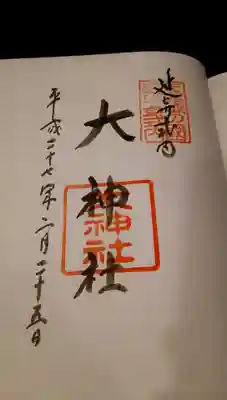 延喜式内
大神社
平成二十七年二月二十五日